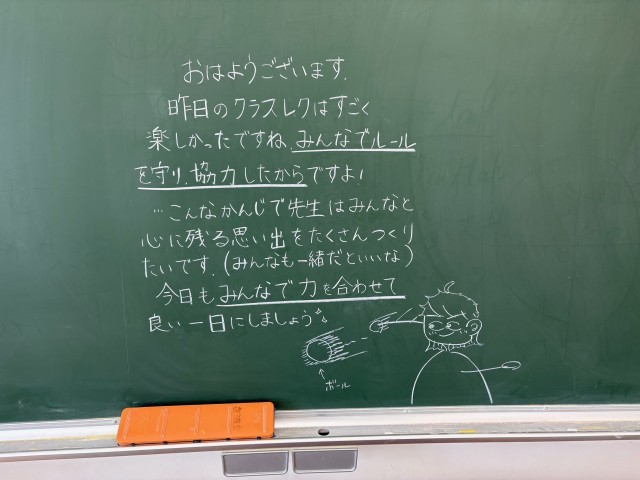 おはようございます.
昨日のクラスレクはすごく
楽しかったですね.みんなでルール
を守り.協力したからですよ!
…こんなかんじで先生はみんなと
心に残る思い出をたくさんつくり
たいです.(みんなも一緒だといいな)
今日もみんなで力を合わせて
良い一日にしましょう
ボール